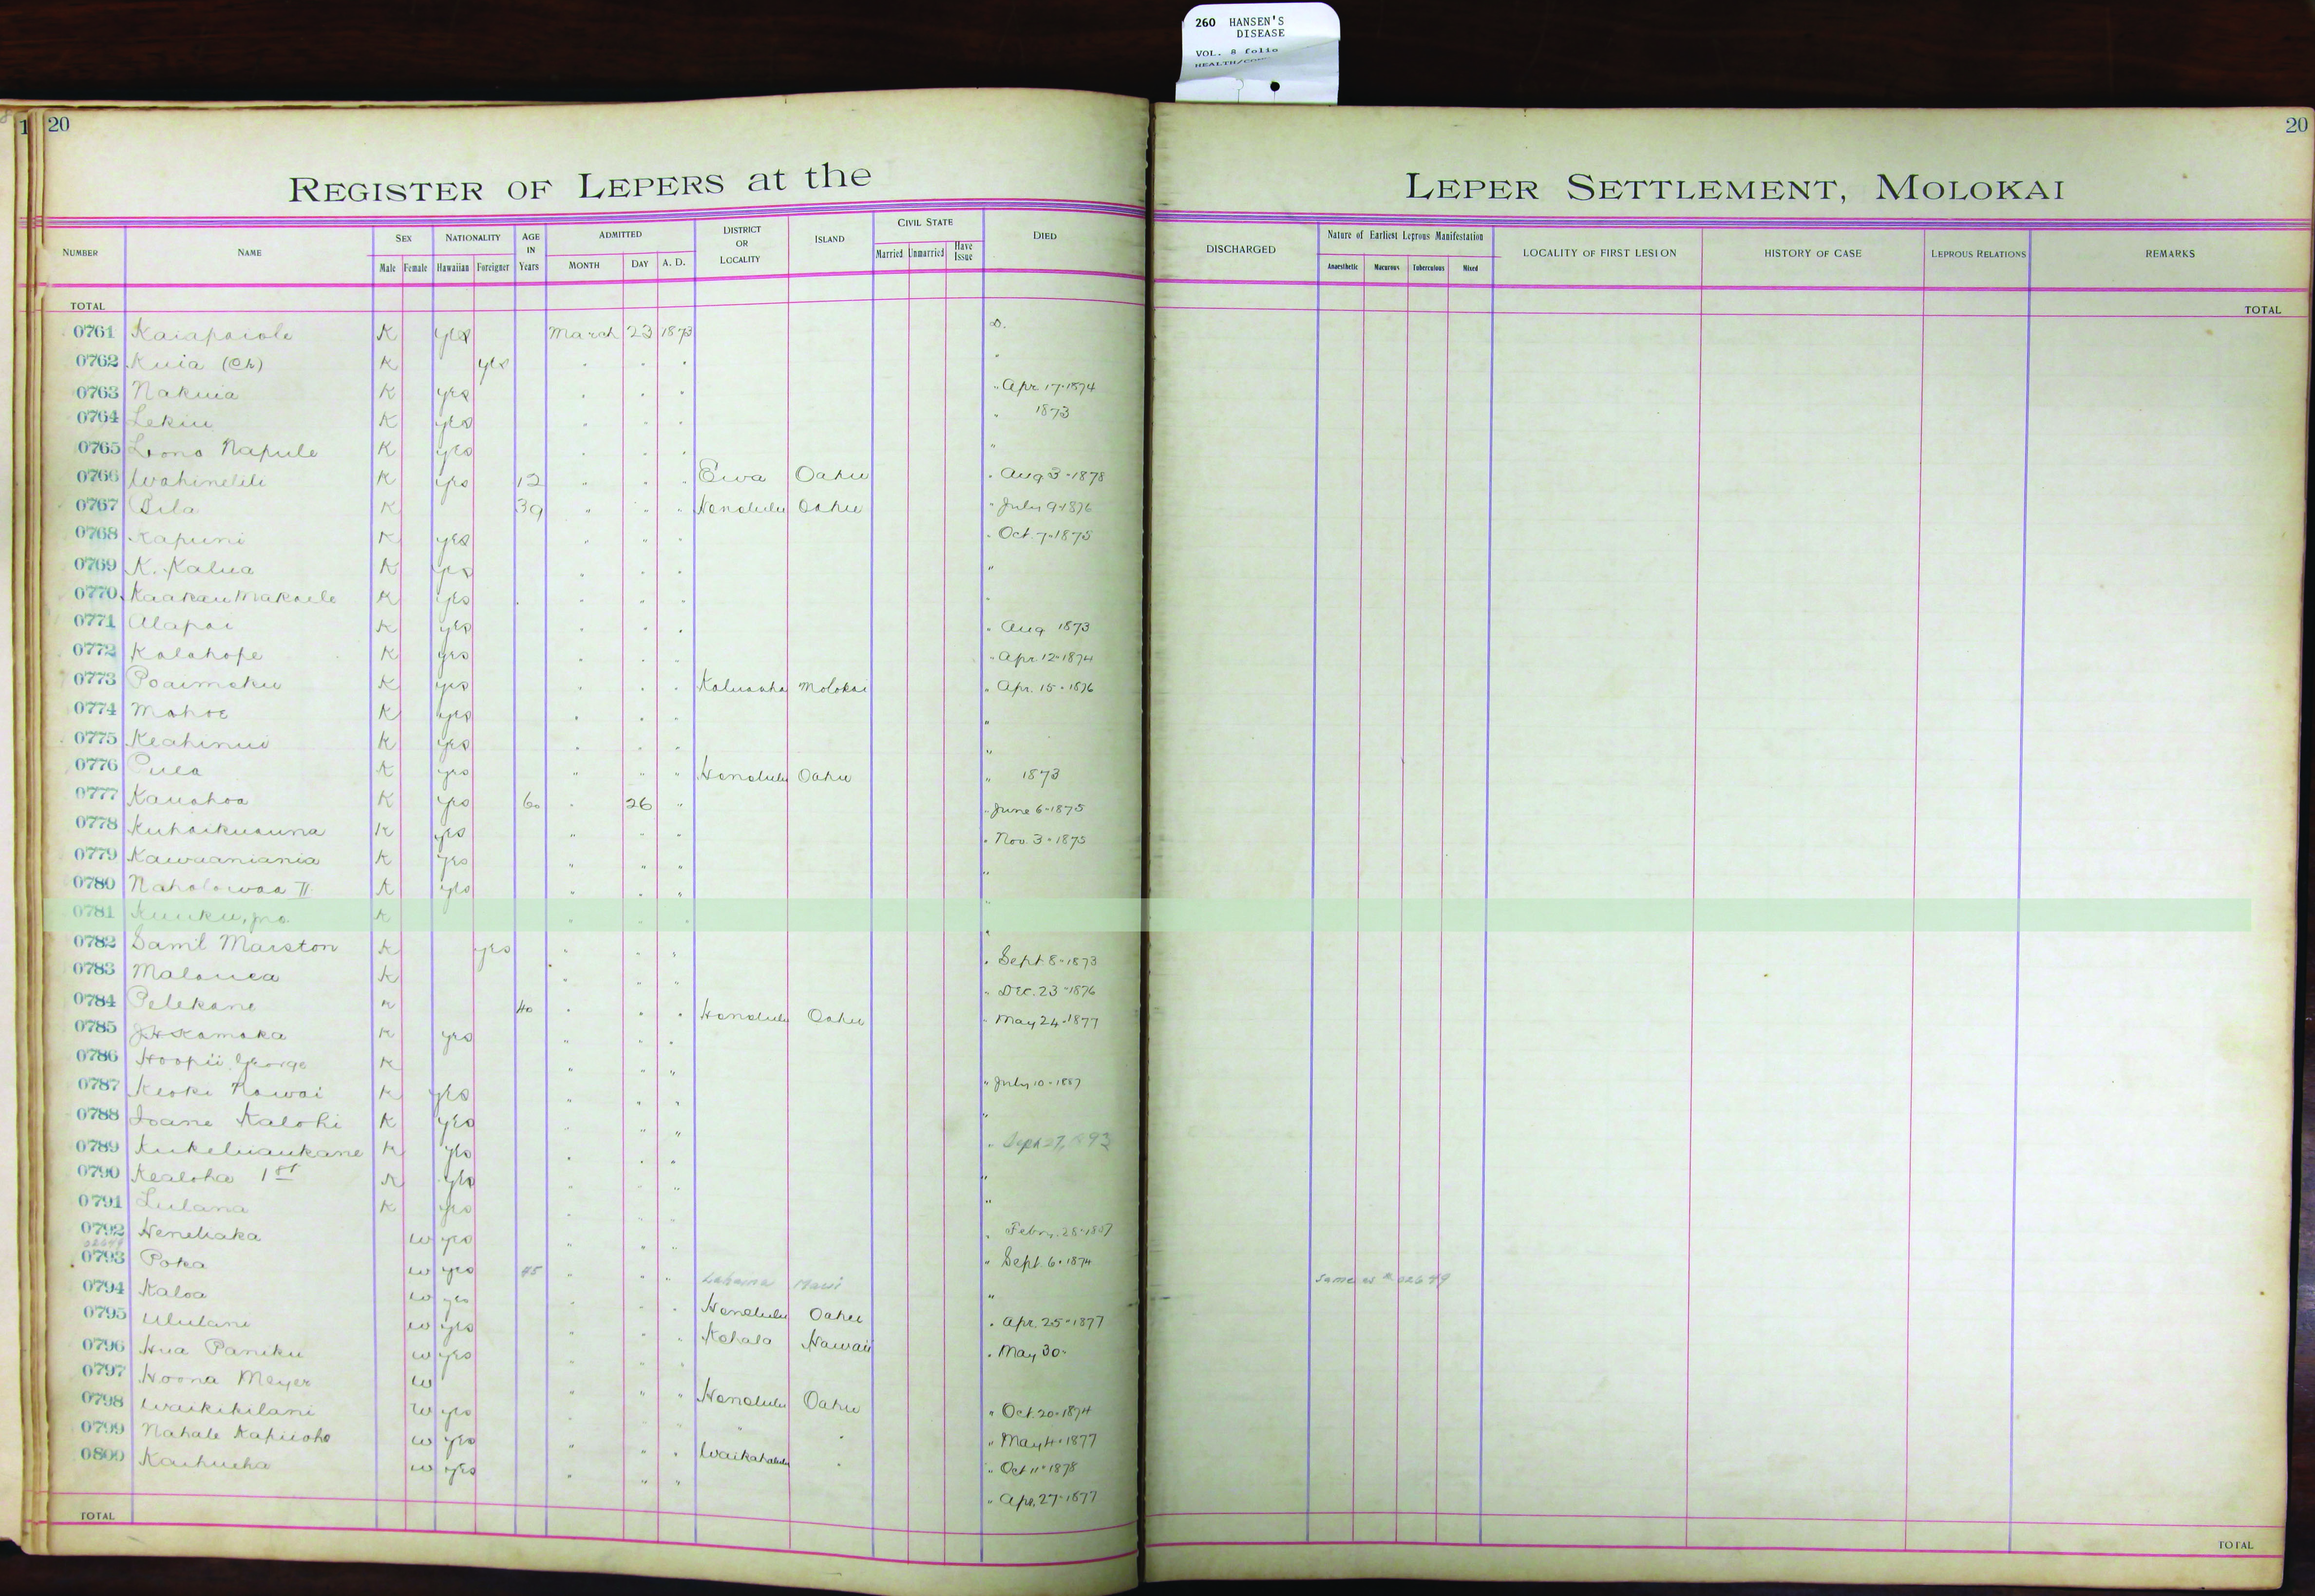 260 HANSEN'S
DISEASE
VOL. 8 folio
20
20
REGISTER OF LEPERS at the LEPER SETTLEMENT, MOLOKAI
NUMBER NAME SEX NATIONALITY AGE IN Years ADMITTED DISTRICT OR LOCALITY ISLAND CIVIL STATE DIED DISCHARGED Nature of Earliest Leprous Manifestation LOCALITY OF FIRST LESION HISTORY OF CASE LEPROUS RELATIONS REMARKS
Male Female Hawaiian Foreigner MONTH DAY A. D. Married Unmarried Have Issue Anaesthetic Macurous Tuberculous Mixed
TOTAL TOTAL
0761 Kaiapaiole K yes March 23 1873 D.
0762 Kuia (Ch) K yes
0763 Nakuia K yes " Apr 17-1874
0764 Lekiu K yes " 1873
0765 Lono Napule K yes "
0766 Wahinelili K yes 12 " " " Ewa Oahu " Aug 3-1878
0767 Pila K 39 " " " Honolulu Oahu " July 9-1876
0768 Kapuni K yes " " " " Oct. 7-1875
0769 K. Kalua K yes "
0770 Kaakau Makaele K yes "
0771 Alapai K yes " Aug 1873
0772 Kalahope K yes " Apr. 12-1874
0773 Poaimoku K yes Kaluaaha Molokai " Apr. 15-1876
0774 Mahoe K yes "
0775 Keahinui K yes "
0776 Puea K yes " " " Honolulu Oahu " 1873
0777 Kauahoa K yes 60 " 26 " " June 6-1875
0778 Kuhaikuauna K yes " " " " Nov. 3-1875
0779 Kawaaniania K yes " " " "
0780 Naholowaa II K yes " " " "
0781 Kuuku, pro. K
0782 Saml Marston K yes " Sept 8-1873
0783 Malanea K " Dec. 23-1876
0784 Pelekane K 40 Honolulu Oahu " May 24-1877
0785 J H Kamaka K yes
0786 Hoopii George K " July 10-1887
0787 Keoki Kawai K yes "
0788 Ioane Kalohi K yes " Sept 27, 1893
0789 Kukeluaukane K yes "
0790 Kealoha 1st K yes "
0791 Lulana K yes " Febr. 28-1887
0792 Heneliaka W yes " Sept. 6-1874
02649
0793 Poka W yes 45 " " " Lahaina Maui " Same as # 02649
0794 Kaloa W yes Honolulu Oahu " Apr. 25-1877
0795 Ululani W yes Kohala Hawaii " May 30-
0796 Hua Paniku W yes
0797 Hoona Meyer W " " " Honolulu Oahu " Oct. 20-1874
0798 Waikikilani W yes " May 4-1877
0799 Nahale Kapuoho W yes " " " Waikahalulu " Oct 11-1878
0800 Kaihueha W yes " " " " Apr. 27-1877
TOTAL TOTAL